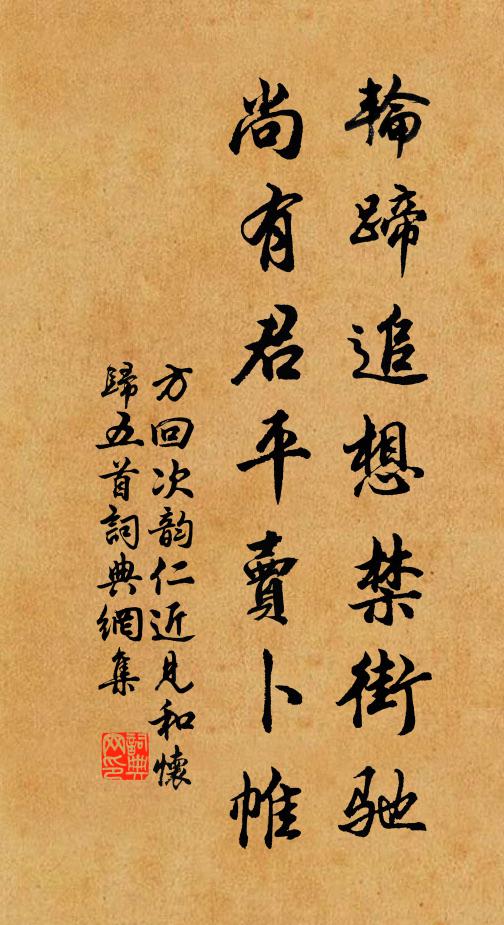 輪蹄追想禁街馳
尚有君平賣卜帷
方回次韵仁近見和懷
歸五首詞典網集
詞典網印